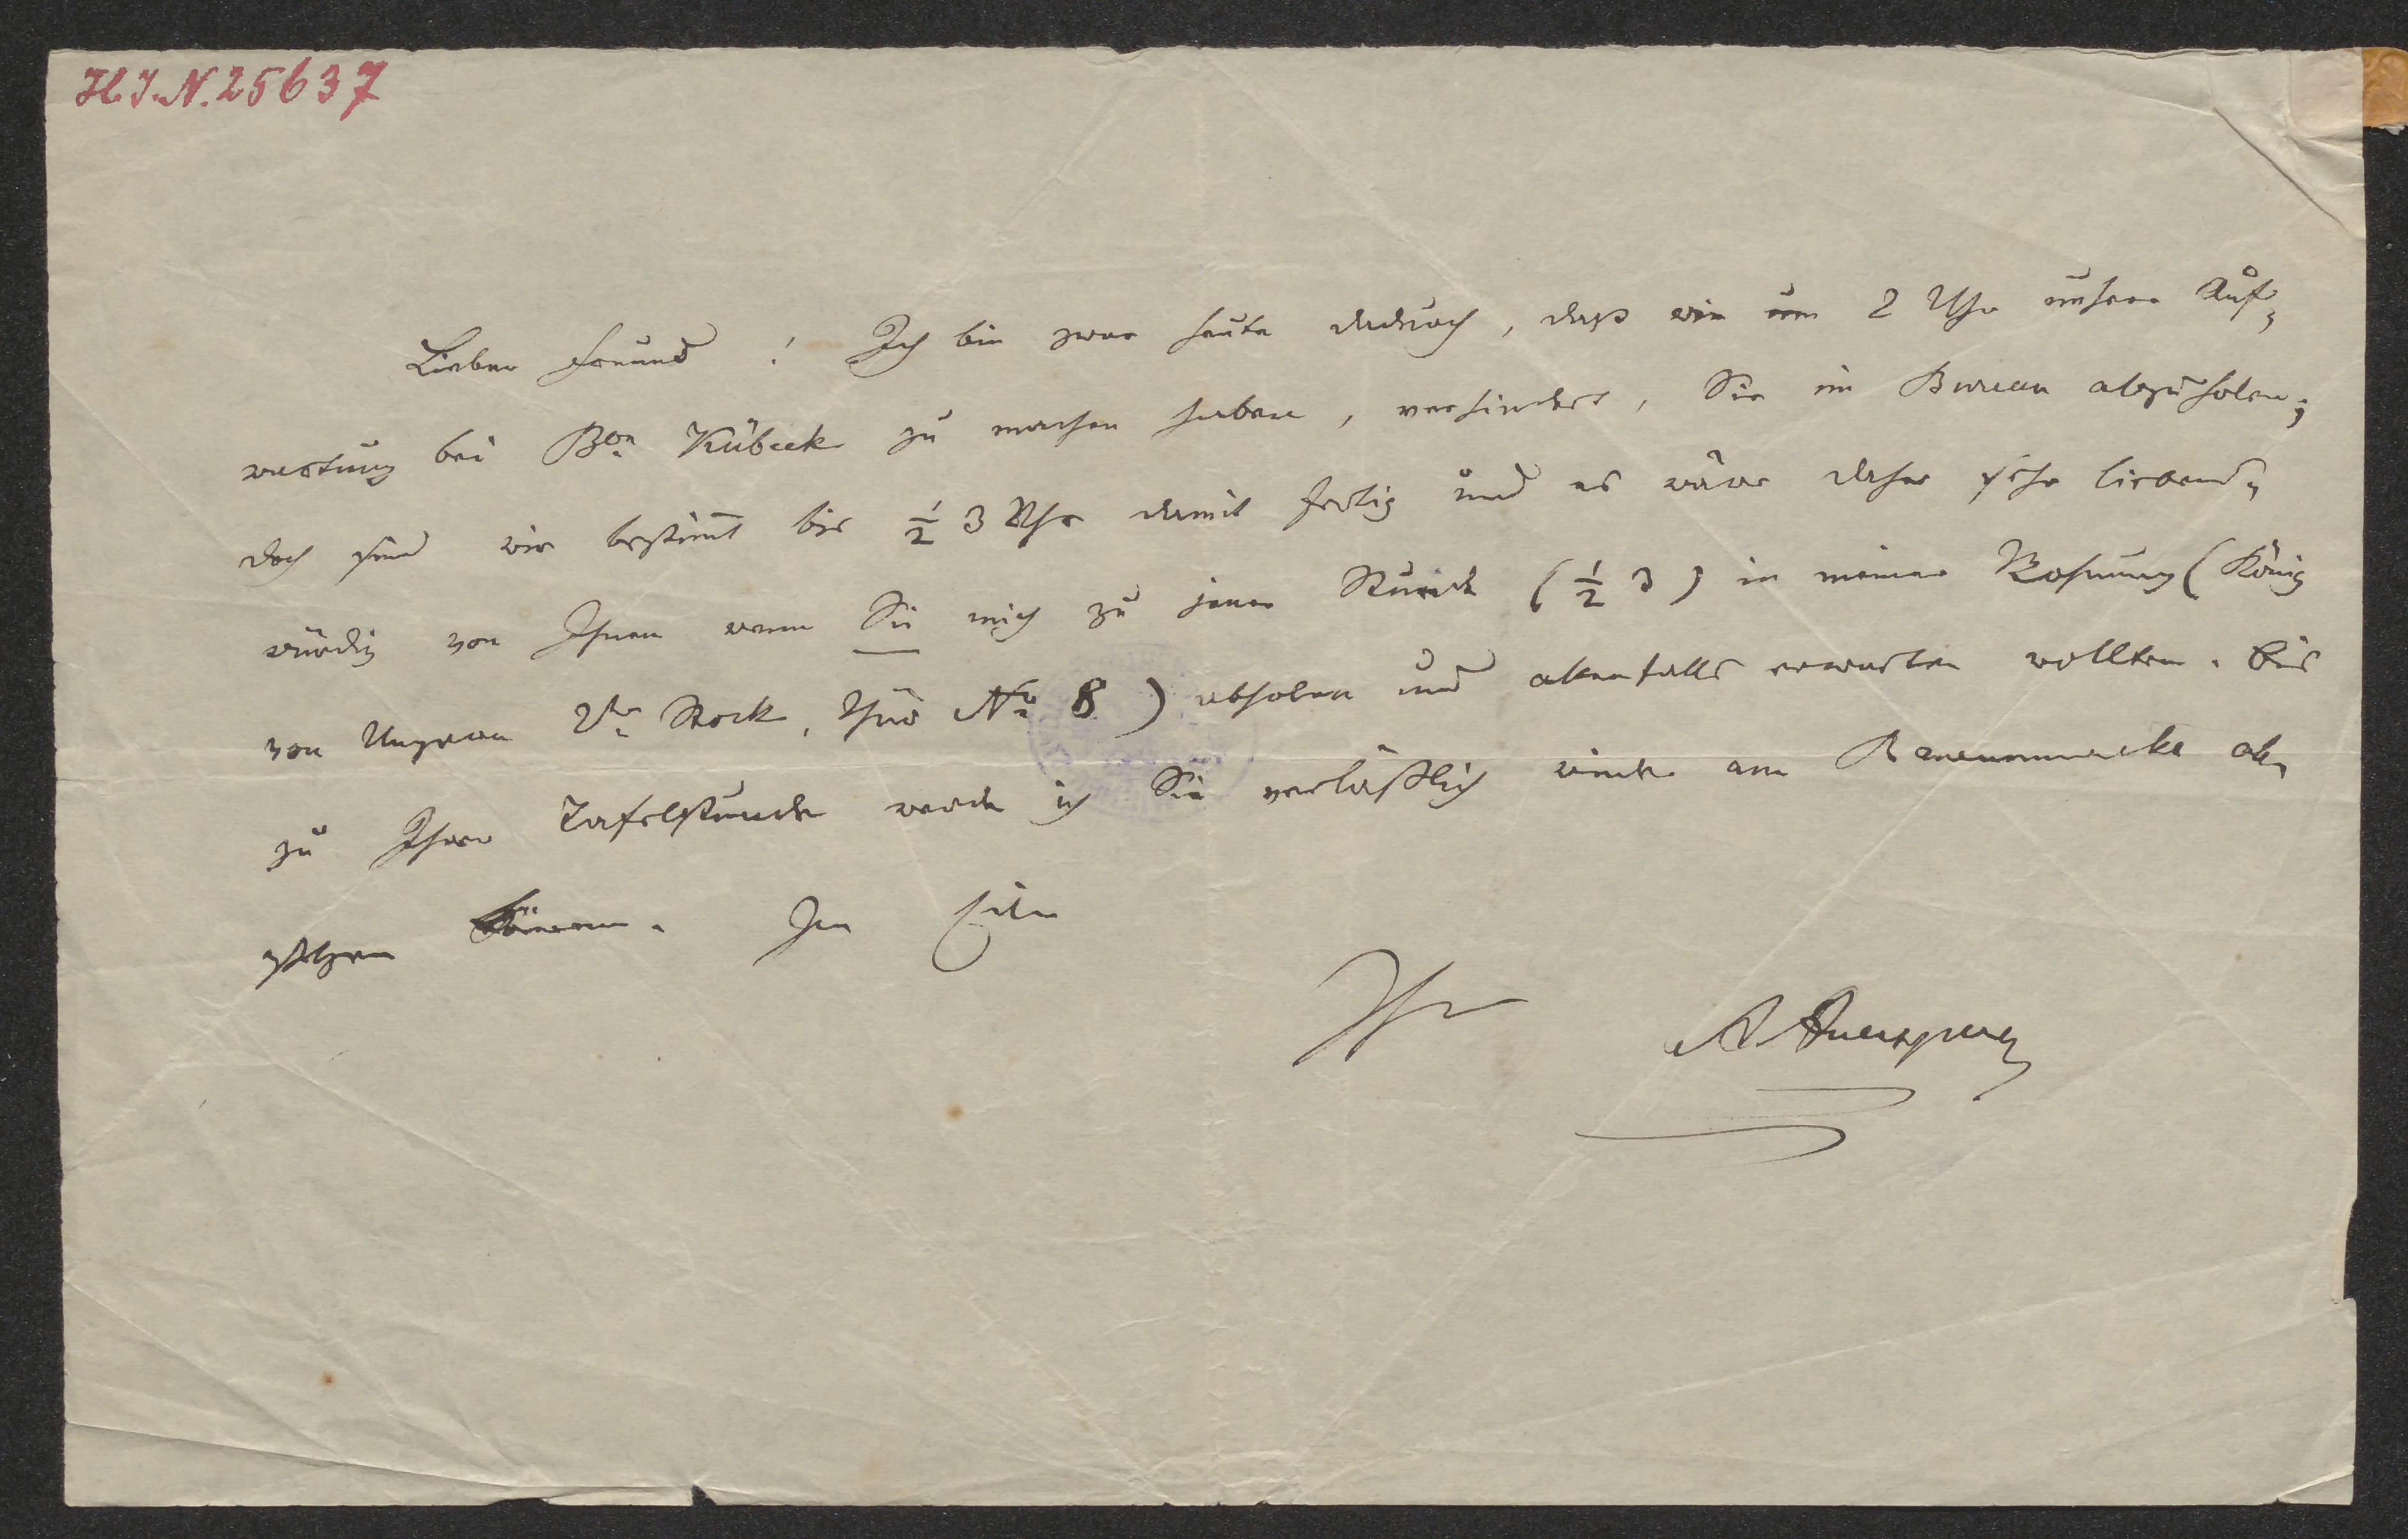 H.I.N. 25637
Lieber Freund! Ich bin zwar heute dadurch, daß wir um 2 Uhr unsere Auf-
wartung bei Bon Kübeck zu machen haben, verhindert, Sie im Bureau abzuholen;
doch sind wir bestimt bis ½ 3 Uhr damit fertig und es wäre daher sehr liebens-
würdig von Ihnen wenn Sie mich zu jener Stunde (½ 3) in meiner Wohnung (König
von Ungarn 2ter Stock, Thür No 8) abholen und allenfalls erwarten wollten. Bis
zu Ihrer Tafelstunde werde ich Sie verläßlich wieder am Bauernmarkte ab-
setzen können. In Eile
Ihr
A Auersperg